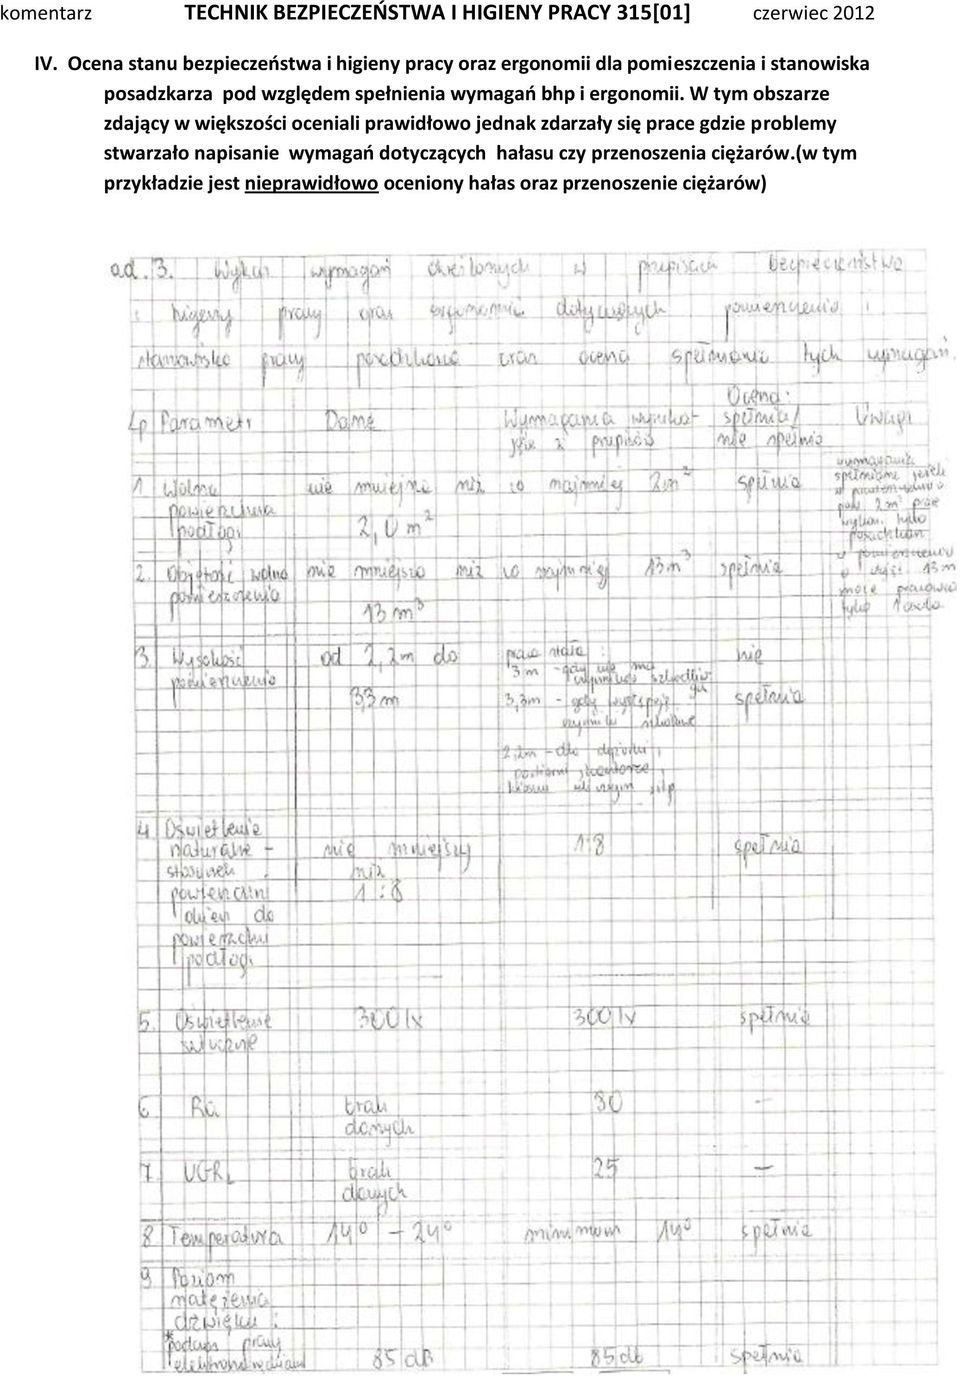 komentarz TECHNIK BEZPIECZEŃSTWA I HIGIENY PRACY 315[01] czerwiec 2012
IV. Ocena stanu bezpieczeństwa i higieny pracy oraz ergonomii dla pomieszczenia i stanowiska
posadzkarza pod względem spełnienia wymagań bhp i ergonomii. W tym obszarze
zdający w większości oceniali prawidłowo jednak zdarzały się prace gdzie problemy
stwarzało napisanie wymagań dotyczących hałasu czy przenoszenia ciężarów.(w tym
przykładzie jest nieprawidłowo oceniony hałas oraz przenoszenie ciężarów)
ad. 3. Wykaz wymagań określonych w przepisach bezpieczeństwa
i higieny pracy oraz ergonomii dotyczących pomieszczenia i
stanowiska pracy posadzkarza oraz ocena spełnienia tych wymagań.
Ocena:
Lp Parametr Dane Wymagania wynika- spełnia/ Uwagi
jące z przepisów nie spełnia
1. Wolna nie mniejsza niż co najmniej 2m² spełnia
powierzchnia
podłogi 2,0 m²
2. Objętość wolna nie mniejsza niż co najmniej 13m³ spełnia
pomieszczenia 13 m³
3. Wysokość od 2,2m do praca stała: nie
pomieszczenia 3,3m 3m - gdy nie ma spełnia
3,3m - gdy występują
2,2m - dla
4 Oświetlenie nie mniejszy 1:8 spełnia
naturalne - niż
stosunek 1:8
powierzchni
okien do
powierzchni
podłogi
5. Oświetlenie 300 lx 300 lx spełnia
sztuczne
6. Ra brak 80 -
danych
7. UGRL brak 25 -
danych
8. Temperatura 14° - 24° minimum 14° spełnia
9. Poziom
natężenia
dźwięku:
*podczas pracy
elektronarzędziami 85 dB 85 dB spełnia